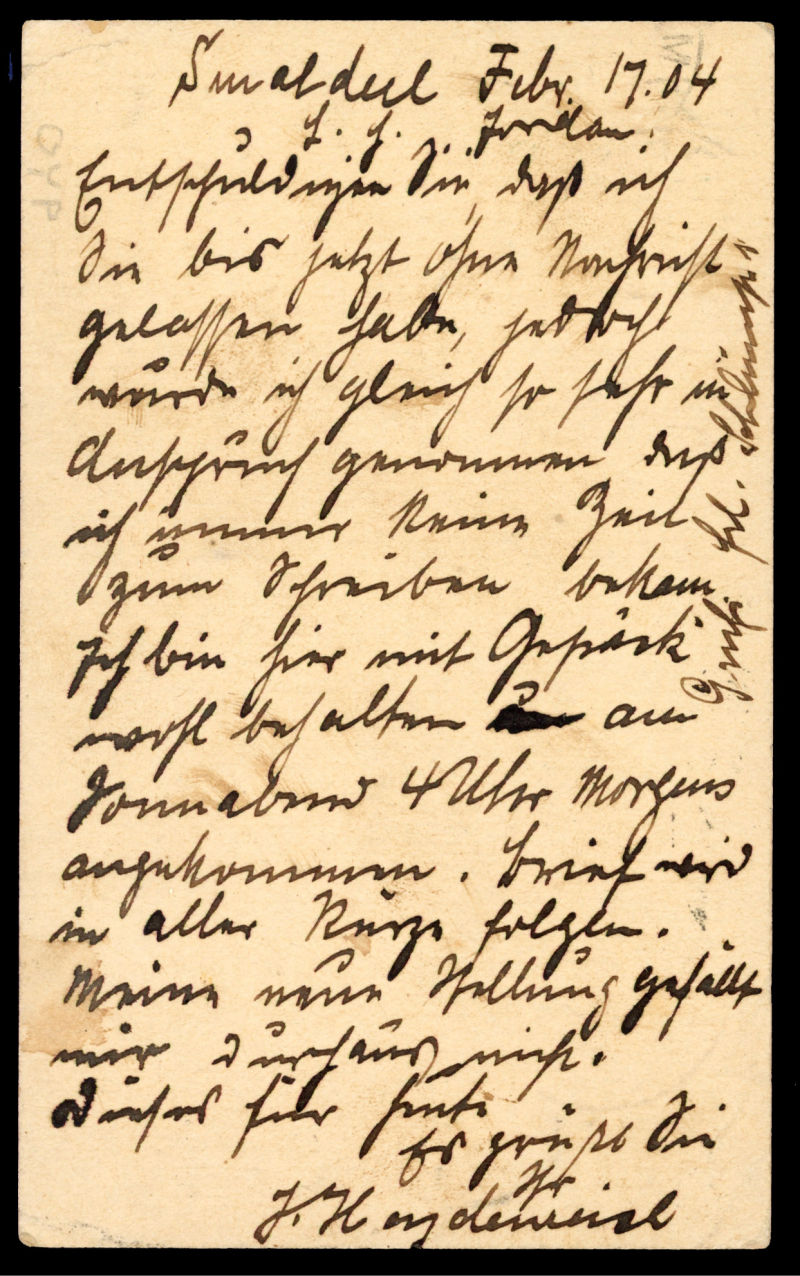 Smaldeel Febr. 17.04
L. H. Jordan!
Entschuldigen Sie, daß ich
Sie bis jetzt ohne Nachricht
gelassen habe, jedoch
wurde ich gleich so sehr in
Anspruch genommen daß
ich immer keine Zeit
zum Schreiben bekam
Ich bin hier mit Gepäck
wohl behalten am
Sonnabend 4 Uhr Morgens
angekommen. Brief wird
in aller Kürze folgen.
Meine neue Stellung gefällt
mir durchaus nicht.
Dieses für heute
Es grüßt Sie
Ihr
J.
Gruß Frl.